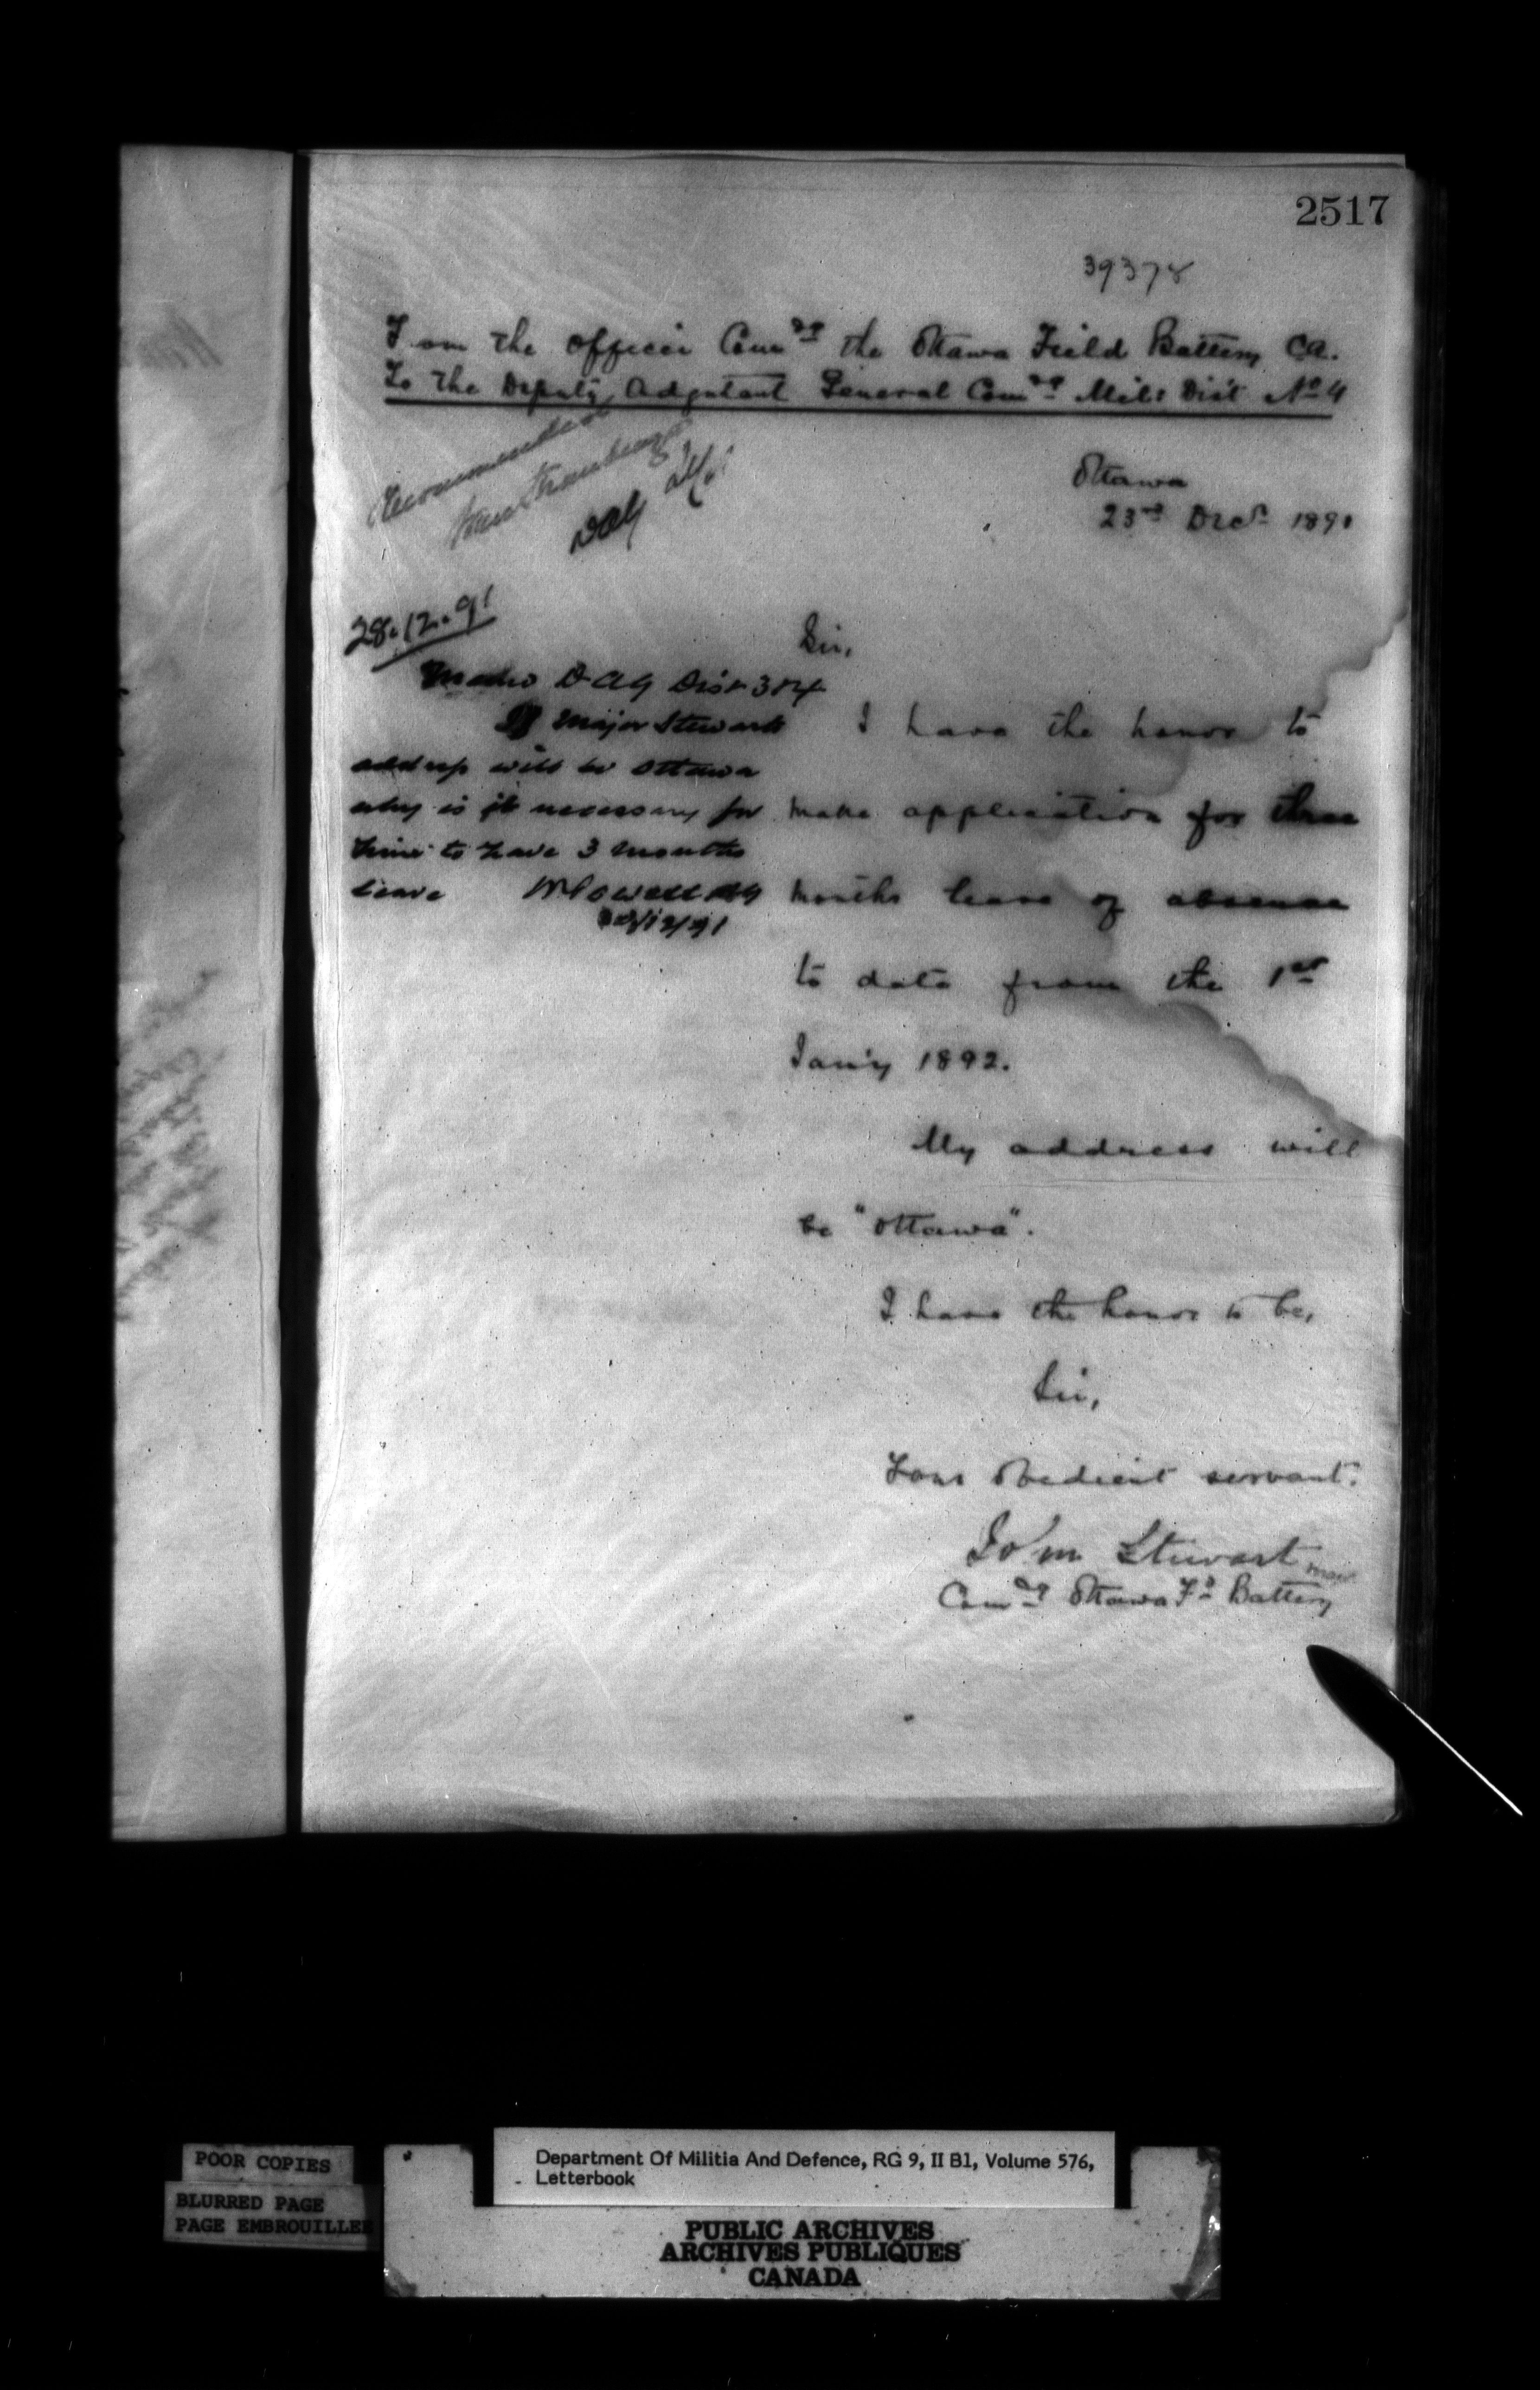 2517
39378
From the Officer Comdg the Ottawa Field Battery C.A.
To the Deputy Adjutant General Comdg Mil: Dist No 4
Recommended
VanStraubenzee
DAG
Ottawa
23rd Decr 1891
28.12.91
Sir,
DAG Dist 3 & 4
If Major Stewarts
I have the honor to
address will be Ottawa
why is it necessary for
make application for three
him to have 3 months
leave WPowell AG
months leave of absence
/12/91
to date from the 1st
Jan'y 1892.
My address will
be "Ottawa".
I have the honor to be,
Sir,
Your obedient servant.
John Stewart Major
Comdg Ottawa Fd Battery
POOR COPIES
BLURRED PAGE
PAGE EMBROUILLEE
Department Of Militia And Defence, RG 9, II B1, Volume 576,
Letterbook
PUBLIC ARCHIVES
ARCHIVES PUBLIQUES
CANADA